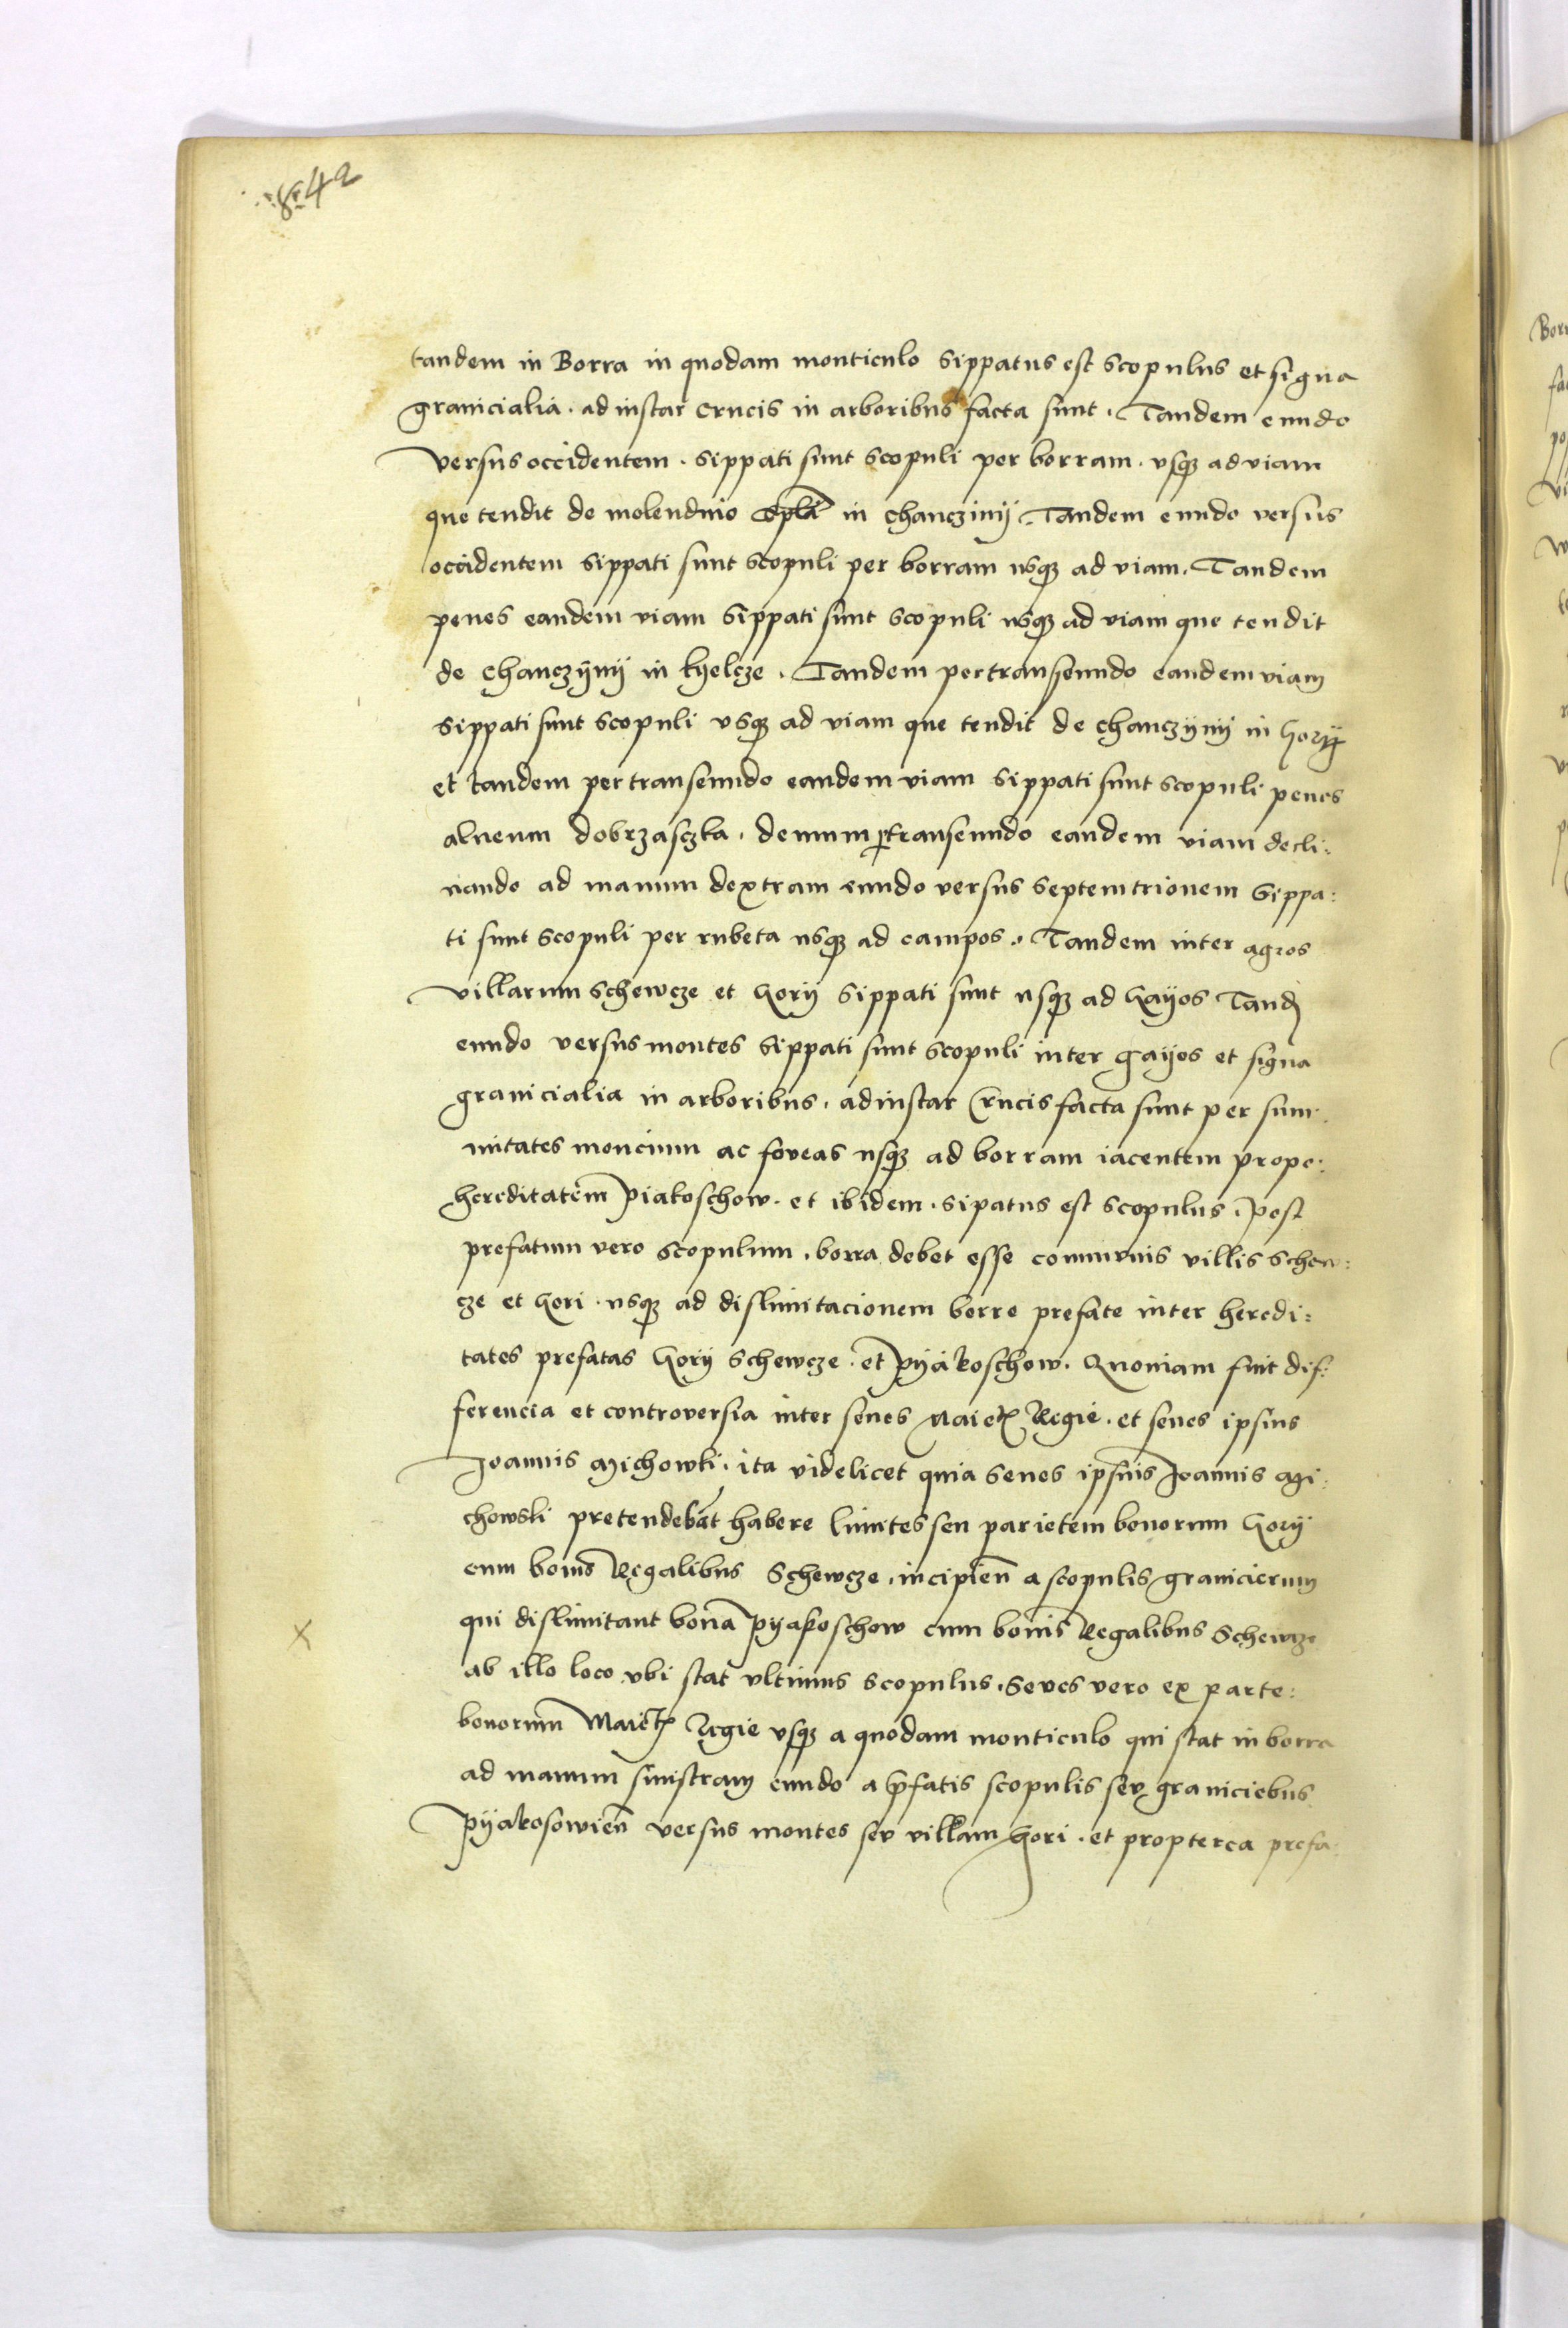 42
tandem in Borra in quodam monticulo sippatus est scopulus et signa
granicialia . ad instar crucis in arboribus facta sunt . Tandem eundo
versus occidentem . sippati sunt scopuli per borram . vsqꝫ ad viam
que tendit de molendino in Chanczinij . Tandem eundo versus
occidentem sippati sunt scopuli per borram usqꝫ ad viam . Tandem
penes eandem viam sippati sunt scopuli usqꝫ ad viam que tendit
de Chanczÿnÿ in kÿelcze . Tandem pertranseundo eandem viam
sippati sunt scopuli vsqꝫ ad viam que tendit de Chanczÿnÿ in Gorÿ
et tandem pertranseundo eandem viam sippati sunt scopuli penes
alueum dobrzaszka . demum ꝑtranseundo eandem viam decli:
nando ad manum dextram eundo versus septemtrionem sippa:
ti sunt scopuli per rubeta usqꝫ ad campos . Tandem inter agros
villarum Schewcze et Gorÿ sippati sunt usqꝫ ad Gaÿos Tandē
eundo versus montes sippati sunt scopuli inter gaÿos et signa
granicialia in arboribus . ad instar Crucis facta sunt per sum:
mitates moncium ac foveas usqꝫ ad borram iacentem prope:
hereditatem Piakoschow . et ibidem . sipatus est scopulus . Post
prefatum vero scopulum . borra debet esse communis villis Schew:
cze et Gori . usqꝫ ad dislimitacionem borre prefate inter heredi:
tates prefatas Gorÿ Schewcze . et Pÿakoschow . Quoniam fuit dif:
ferencia et controversia inter senes Maietꝭ Regie . et senes ipsius
Joannis Michowski . ita videlicet quia senes ipsius Joannis Mi:
chowski pretendebāt habere limites seu parietem bonorum Gorÿ
cum bonis Regalibus Schewcze . incipien̄ a scopulis granicierum
qui dislimitant bona Pyakoschow cum bonis Regalibus Schewcze
ab illo loco vbi stat vltimus scopulus . Senes vero ex parte:
bonorum Maietꝭ Regie vsqꝫ a quodam monticulo qui stat in borra
ad manum sinistram eundo a p̄fatis scopulis seu graniciebus
Pÿakosowien̄ versus montes seu villam Gori . et propterea prefa: